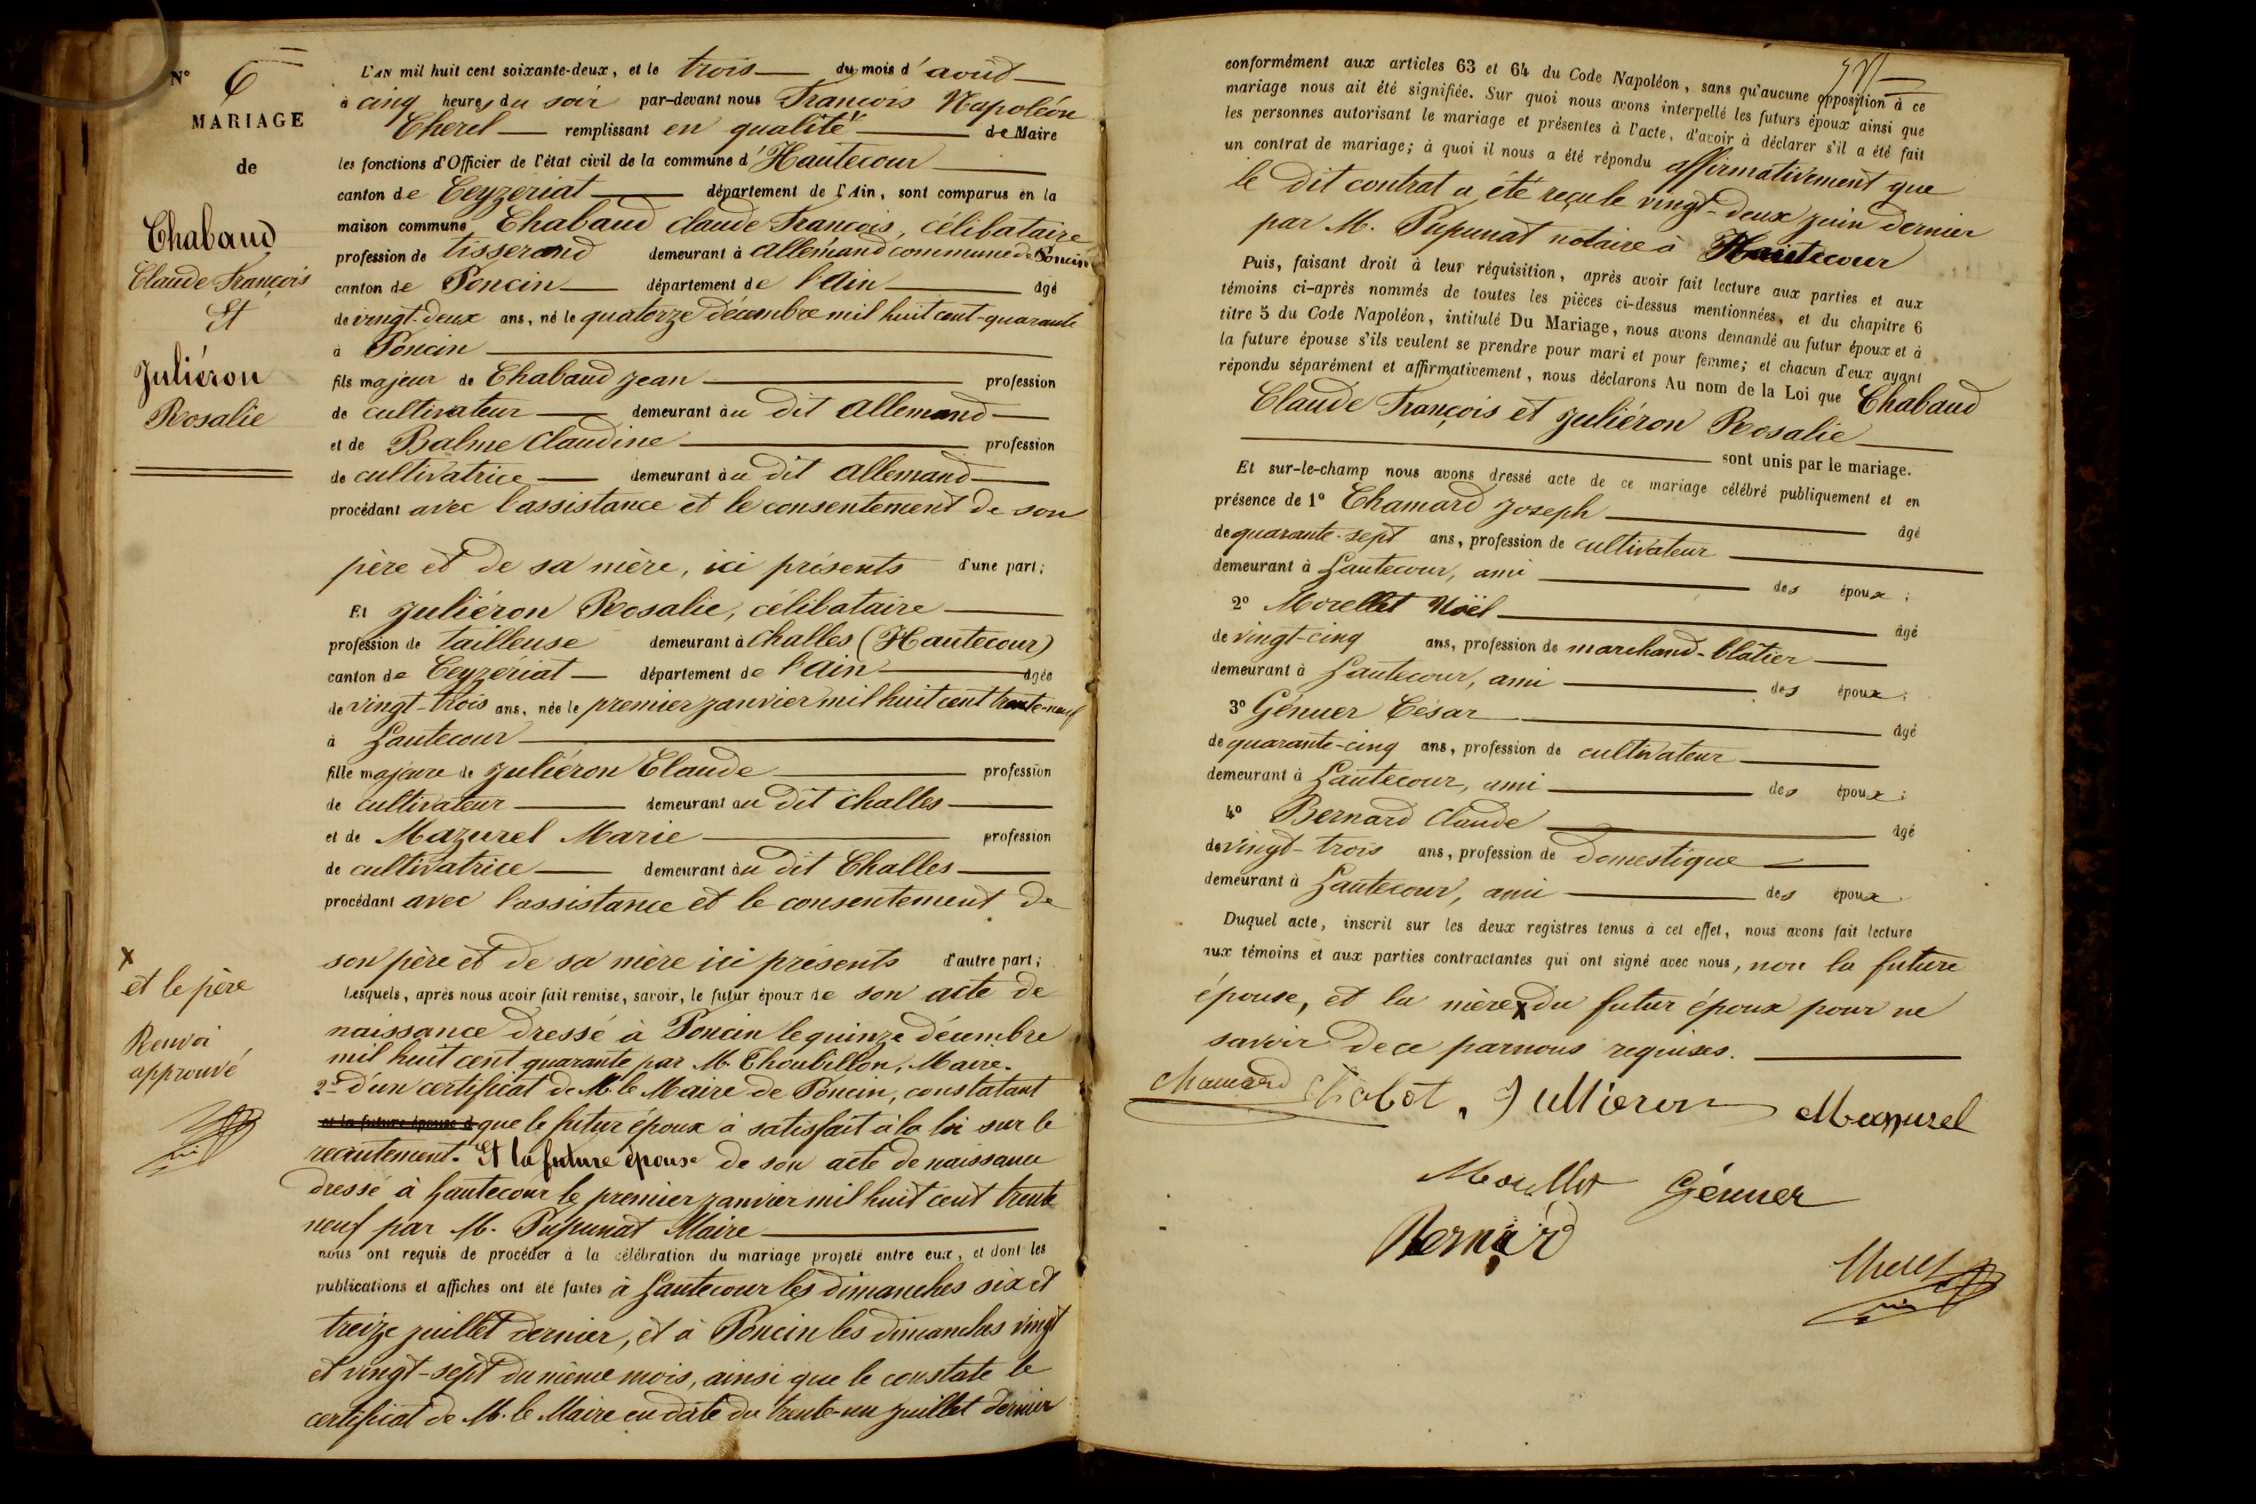 N° 6
MARIAGE
de
Chabaud
Claude François
Et
Juliéron
Rosalie
L'AN mil huit cent soixante-deux, et le trois du mois d'août
à cinq heures du soir par-devant nous François Napoléon
Cherel remplissant en qualité de Maire
les fonctions d'Officier de l'état civil de la commune d'Hautecour
canton de Ceyzériat département de l'Ain, sont comparus en la
maison commune Chabaud Claude François, célibataire
profession de tisserand demeurant à Allemand commune de Poncin
canton de Poncin département de l'Ain âgé
de vingt-deux ans, né le quatorze décembre mil huit cent-quarante
à Poncin
fils majeur de Chabaud Jean profession
de cultivateur demeurant au dit Allemand
et de Balme Claudine profession
de cultivatrice demeurant au dit Allemand
procédant avec l'assistance et le consentement de son
père et de sa mère, ici présents d'une part;
Et Juliéron Rosalie, célibataire
profession de tailleuse demeurant à Challes (Hautecour)
canton de Ceyzériat département de l'Ain âgée
de vingt-trois ans, née le premier janvier mil huit cent trente-neuf
à hautecour
fille majeure de Juliéron Claude profession
de cultivateur demeurant au dit Challes
et de Mazurel Marie profession
de cultivatrice demeurant au dit Challes
procédant avec l'assistance et le consentement de
son père et de sa mère ici présents d'autre part;
Lesquels, après nous avoir fait remise, savoir, le futur époux de son acte de
naissance dressé à Poncin le quinze décembre
mil huit cent quarante par M. Thoubillon, Maire.
2° d'un certificat de M. le Maire de Poncin, constatant
et la future épouse d que le futur époux a satisfait à la loi sur le
recrutement. Et la future épouse de son acte de naissance
dressé à hautecour le premier janvier mil huit cent trente
neuf par M. Pupunat Maire
nous ont requis de procéder à la célébration du mariage projeté entre eux, et dont les
publications et affiches ont été faites à hautecour les dimanches six et
treize juillet dernier, et à Poncin les dimanches vingt
et vingt-sept du même mois, ainsi que le constate le
certificat de M. le Maire en date du trente-un juillet dernier
x
et le père
Renvoi
approuvé
conformément aux articles 63 et 64 du Code Napoléon, sans qu'aucune opposition à ce
mariage nous ait été signifiée. Sur quoi nous avons interpellé les futurs époux ainsi que
les personnes autorisant le mariage et présentes à l'acte, d'avoir à déclarer s'il a été fait
un contrat de mariage; à quoi il nous a été répondu affirmativement que
le dit contrat a été reçu le vingt-deux juin dernier
par M. Pupunat notaire à Hautecour
Puis, faisant droit à leur réquisition, après avoir fait lecture aux parties et aux
témoins ci-après nommés de toutes les pièces ci-dessus mentionnées, et du chapitre 6
titre 5 du Code Napoléon, intitulé Du Mariage, nous avons demandé au futur époux et à
la future épouse s'ils veulent se prendre pour mari et pour femme; et chacun d'eux ayant
répondu séparément et affirmativement, nous déclarons Au nom de la Loi que Chabaud
Claude François et Juliéron Rosalie
sont unis par le mariage.
Et sur-le-champ nous avons dressé acte de ce mariage célébré publiquement et en
présence de 1° Chamard Joseph âgé
de quarante-sept ans, profession de cultivateur
demeurant à hautecour, ami des époux;
2° Morellet Noël âgé
de vingt-cinq ans, profession de marchand-blatier
demeurant à hautecour, ami des époux;
3° Génuer César âgé
de quarante-cinq ans, profession de cultivateur
demeurant à hautecour, ami des époux;
4° Bernard Claude âgé
de vingt-trois ans, profession de domestique
demeurant à hautecour, ami des époux
Duquel acte, inscrit sur les deux registres tenus à cet effet, nous avons fait lecture
aux témoins et aux parties contractantes qui ont signé avec nous, non la future
épouse, et la mère x du futur époux pour ne
savoir de ce par nous requises.
Chamard Chabot. Jullieron Mazurel
Morellet Génuer
Bernard
Cherel